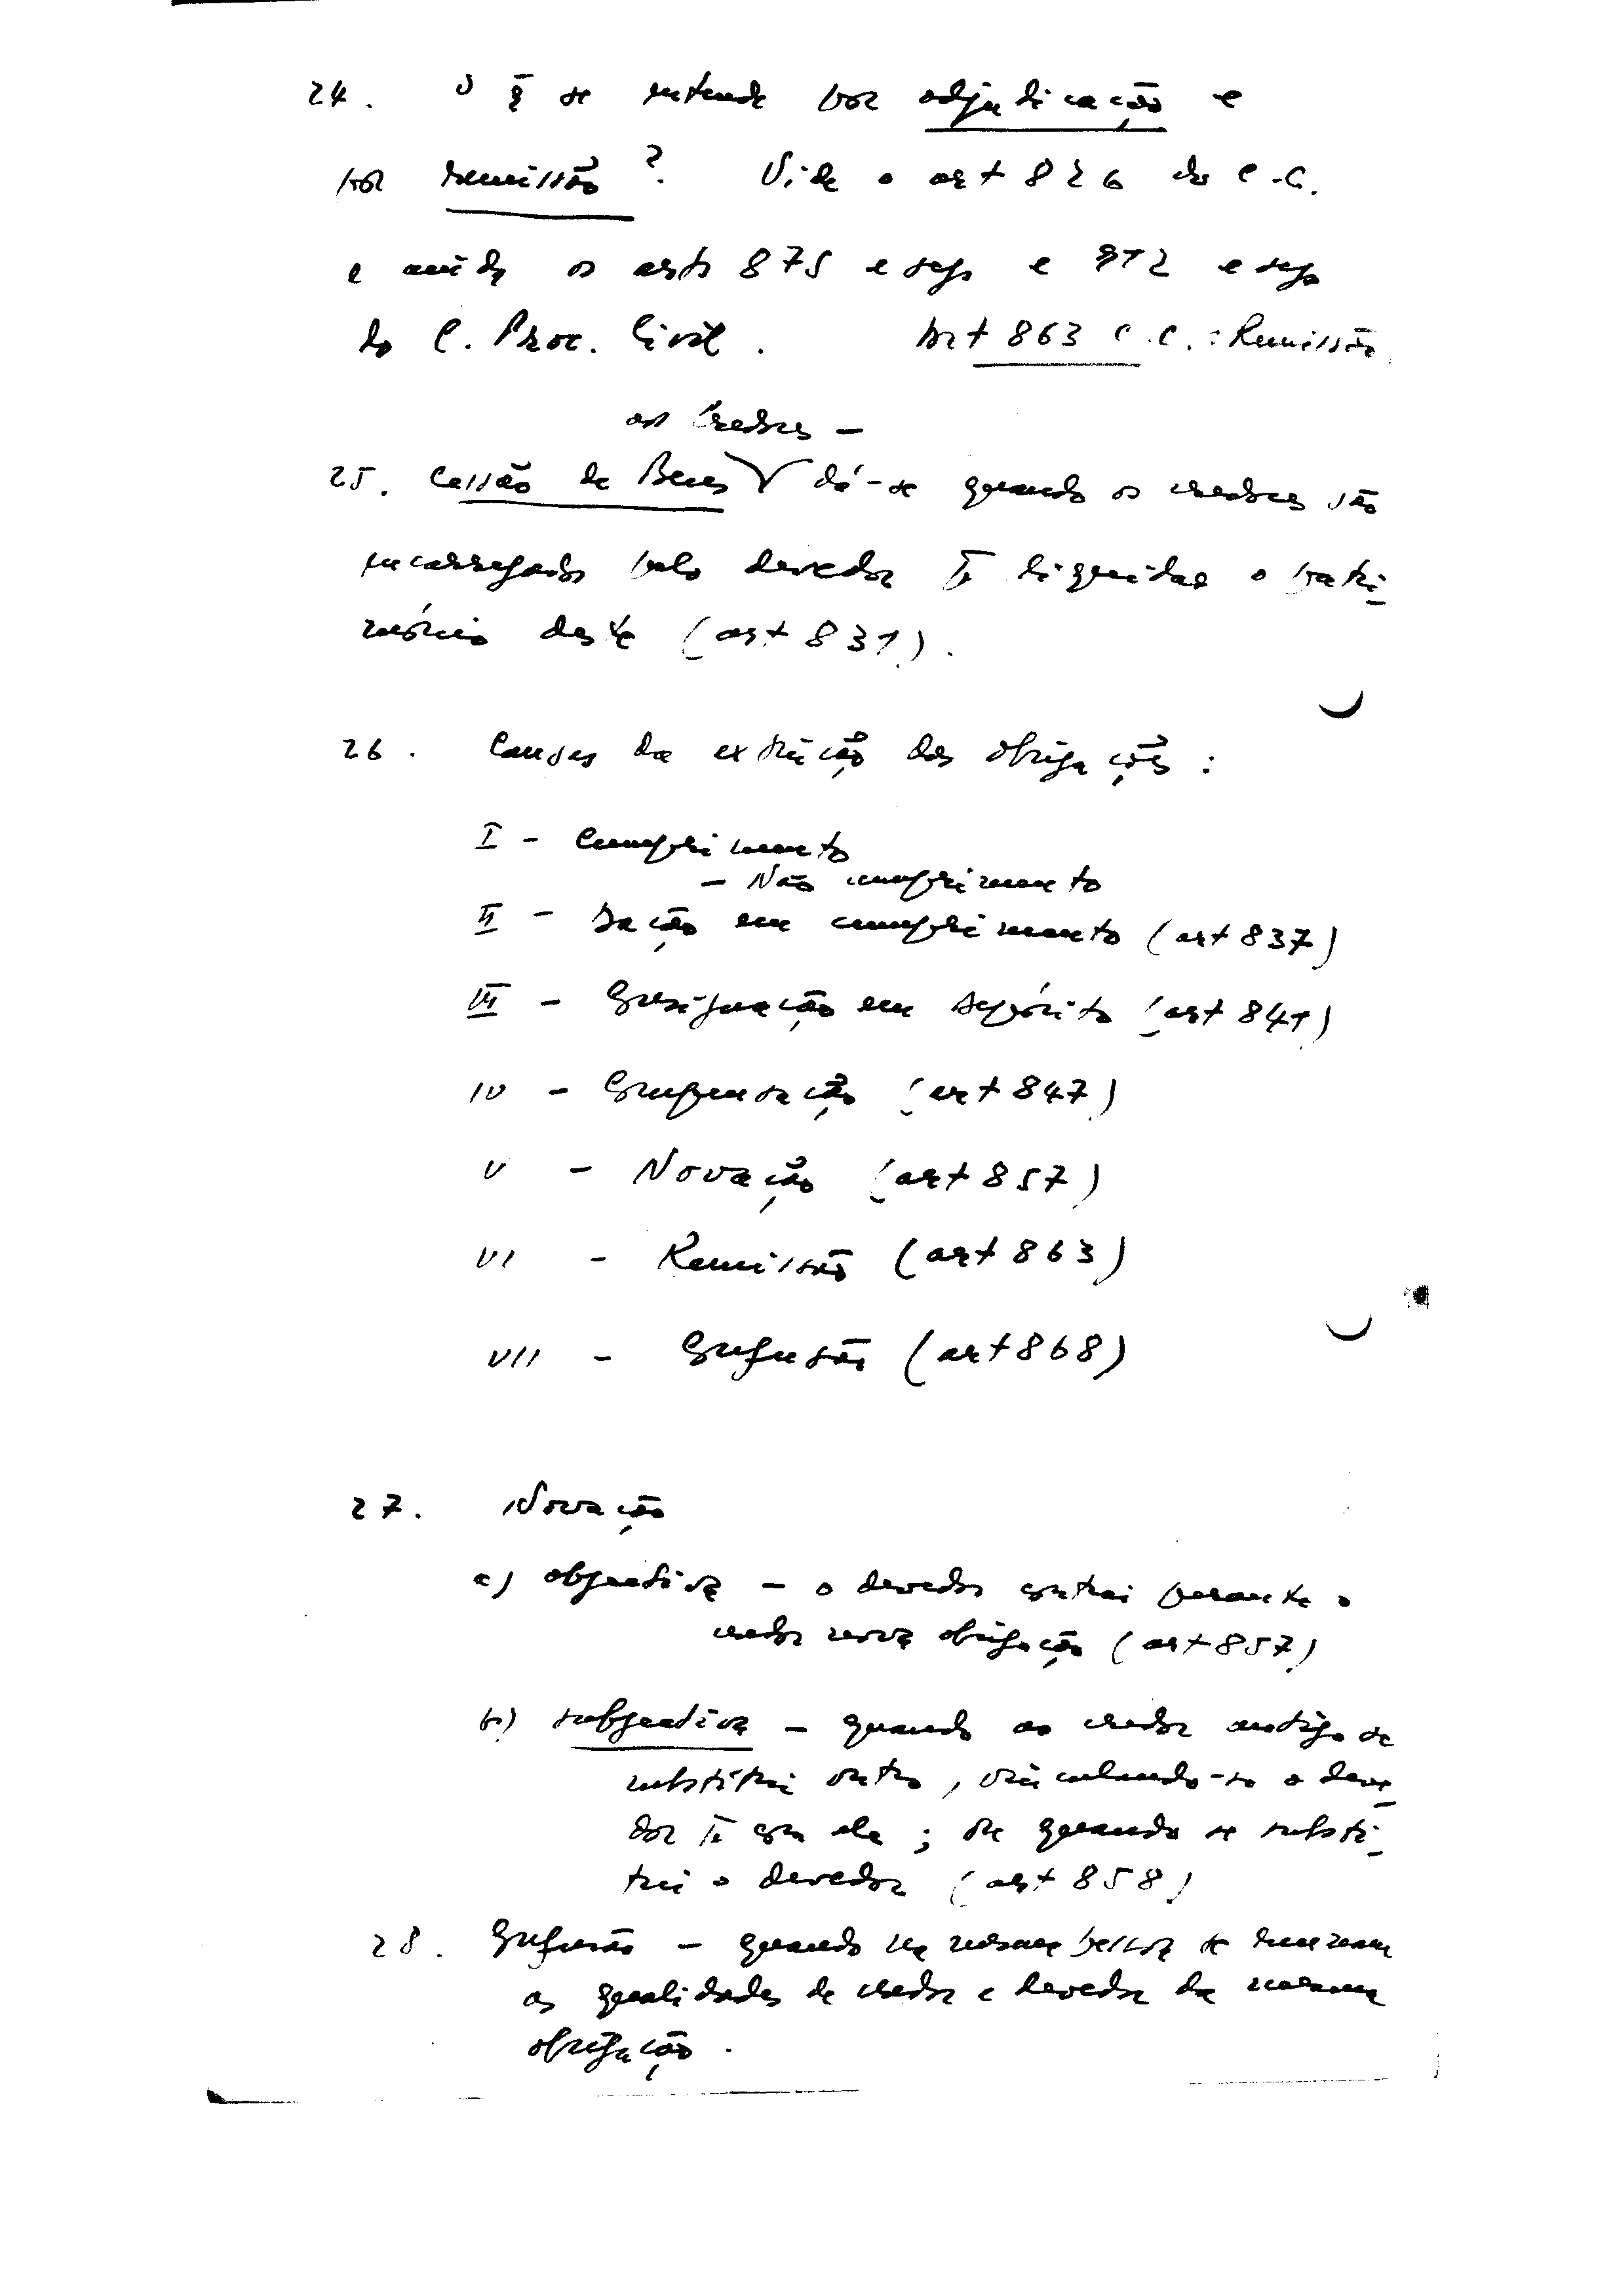 24. O q̄ se entende por adjudicação e
por remissão? Vide o art 826 do C.C.
e ainda os arts 875 e segs e 912 e segs
do C. Proc. Civil. Art 863 C.C.: Remissão
aos credores –
25. Cessão de Bens V dá-se quando os credores são
encarregados pelo devedor de liquidar o patri-
mónio deste (art 831).
26. Causas da extinção das obrigações:
I – Cumprimento
– Não cumprimento
II – Dação em cumprimento (art 837)
III – Consignação em depósito (art 841)
IV – Compensação (art 847)
V – Novação (art 857)
VI – Remissão (art 863)
VII – Confusão (art 868)
27. Novação
a) objectiva – o devedor contrai perante o
credor nova obrigação (art 857)
b) subjectiva – quando ao credor antigo se
substitui outro, vinculando-se o deve-
dor com ele; ou quando se substi-
tui o devedor (art 858)
28. Confusão – quando na mesma pessoa se reunem
as qualidades de credor e devedor da mesma
obrigação.